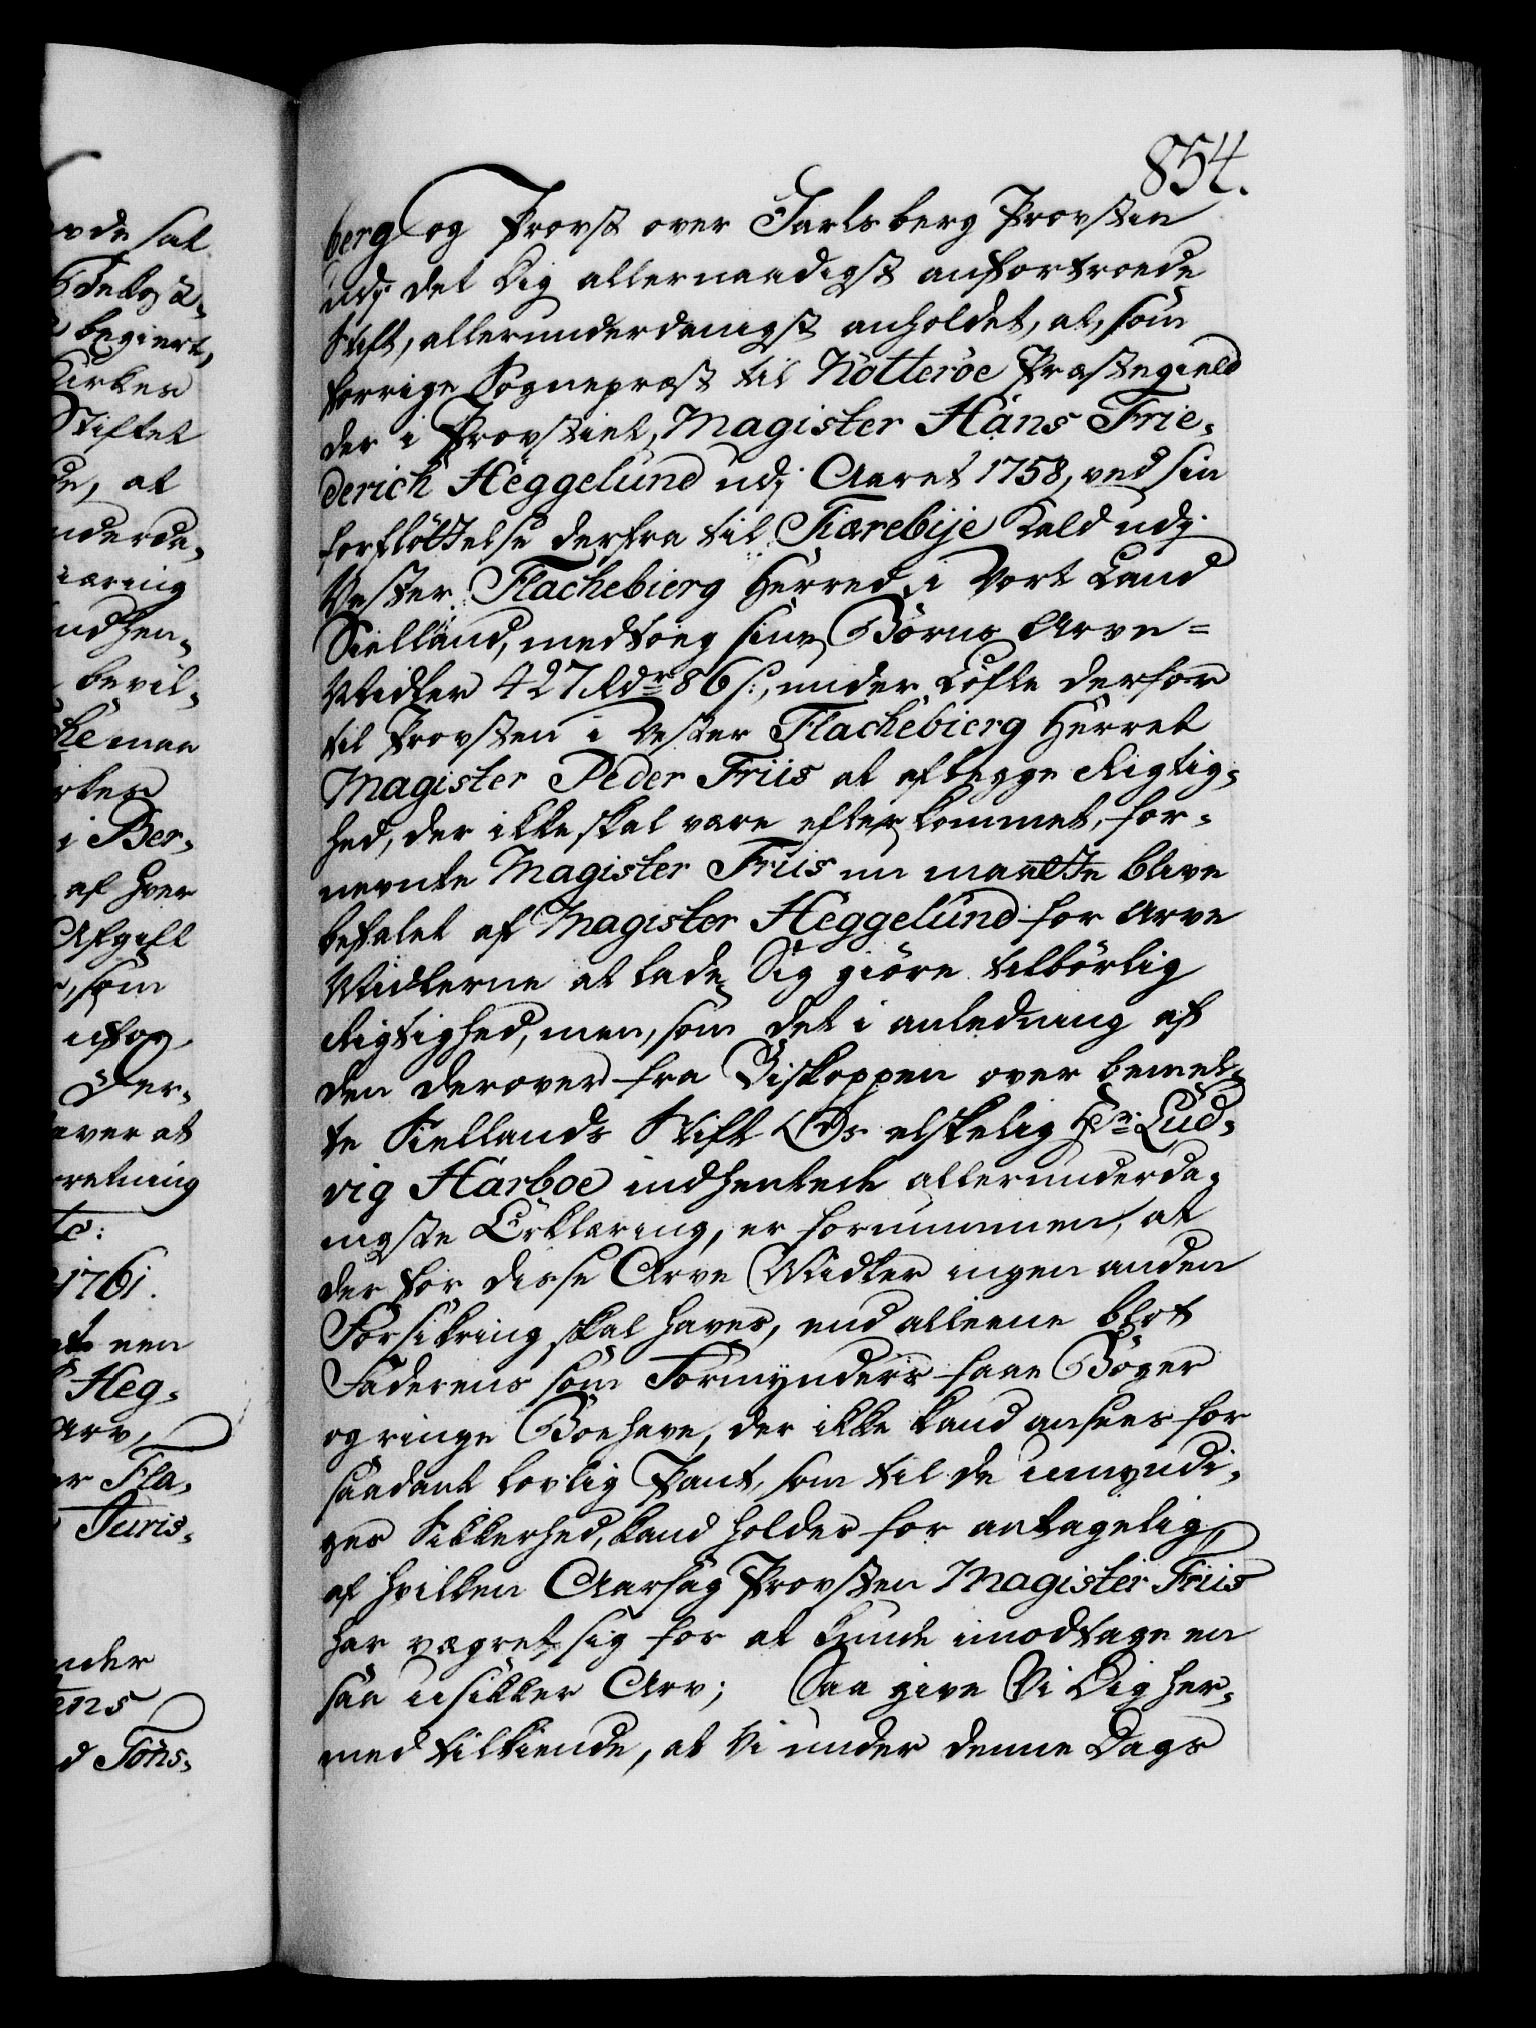 854.
berg og Provst over Jarlsberg Provstie
udj det Dig allernaadigst anfortroede
Stift, allerunderdanigst anholdet, at, som
forrige Sognepræst til Nötteröe Præstegield
der i Provstiet, Magister Hans Frie-
derich Heggelund udj Aaret 1758, ved sin
forflöttelse derfra til Fiærebÿe Kald udj
Vester Flachebierg Herred, i Vort Land
Sielland, medtoeg sine Börns Arve-
Midler 427 Rdr 86 s:, under Löfte derfor
til Provsten i Vester Flachebierg Herret
Magister Peder Friis at aflegge Rigtig-
hed, der ikke skal være efterkommet, for-
nevnte Magister Friis nu maatte blive
befalet af Magister Heggelund for Arve
Midlerne at lade Sig giöre tilbörlig
Rigtighed, men, som det i anledning af
den derover fra Biskoppen over bemel-
te Siellands Stift Os elskelig Hr: Lud-
vig Harboe indhentede allerunderda-
nigste Erklæring, er fornummen, at
der for disse Arve Midler ingen anden
Forsikring skal haves, end alleene blot
Faderens som Formÿnders faae Böger
og ringe Boehave, der ikke kand ansees for
saadant lovlig Pant, som til de umyndi-
ges Sikkerhed, kand holdes for antagelig,
af hvilken Aarsag Provsten Magister Friis
har vægret sig for at kunde imodtage en
saa usikker Arv; Saa give Vi Dig her-
med tilkiende, at Vi under denne Dags